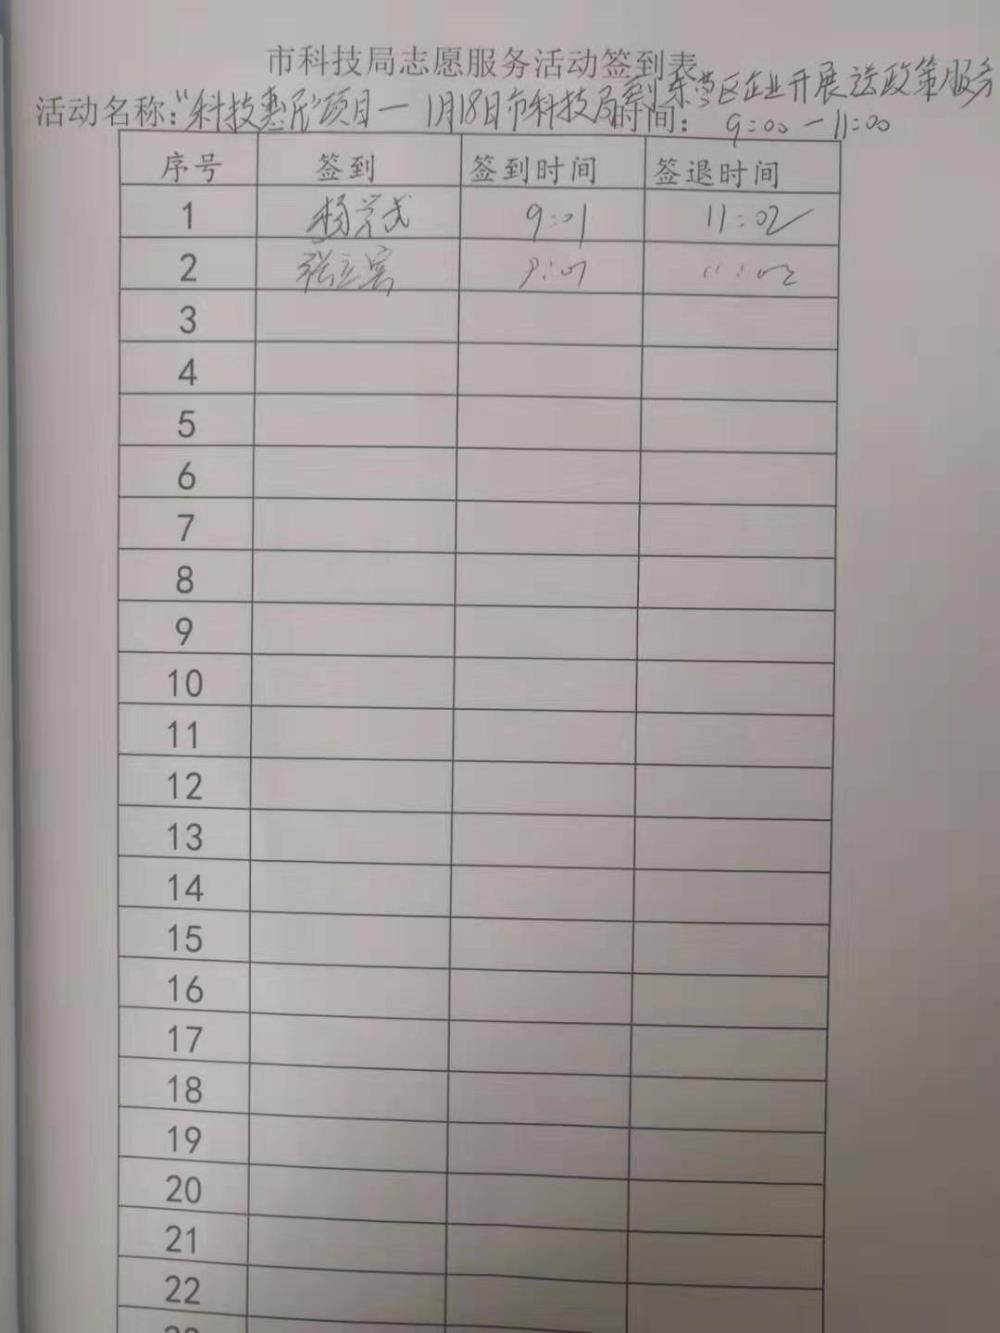 市科技局志愿服务活动签到表
活动名称:"科技惠民"项目—1月18日市科技局到东营区企业开展送政策服务
时间: 9:00—11:00
序号 签到 签到时间 签退时间
1 9:01 11:02
2 张立宾 9:01 11:02
3
4
5
6
7
8
9
10
11
12
13
14
15
16
17
18
19
20
21
22